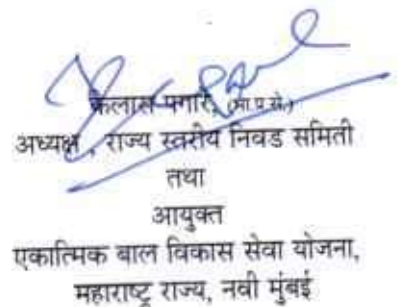 कैलास पगारे, (भा.प्र.से.)
अध्यक्ष , राज्य स्तरीय निवड समिती
तथा
आयुक्त
एकात्मिक बाल विकास सेवा योजना,
महाराष्ट्र राज्य, नवी मुंबई